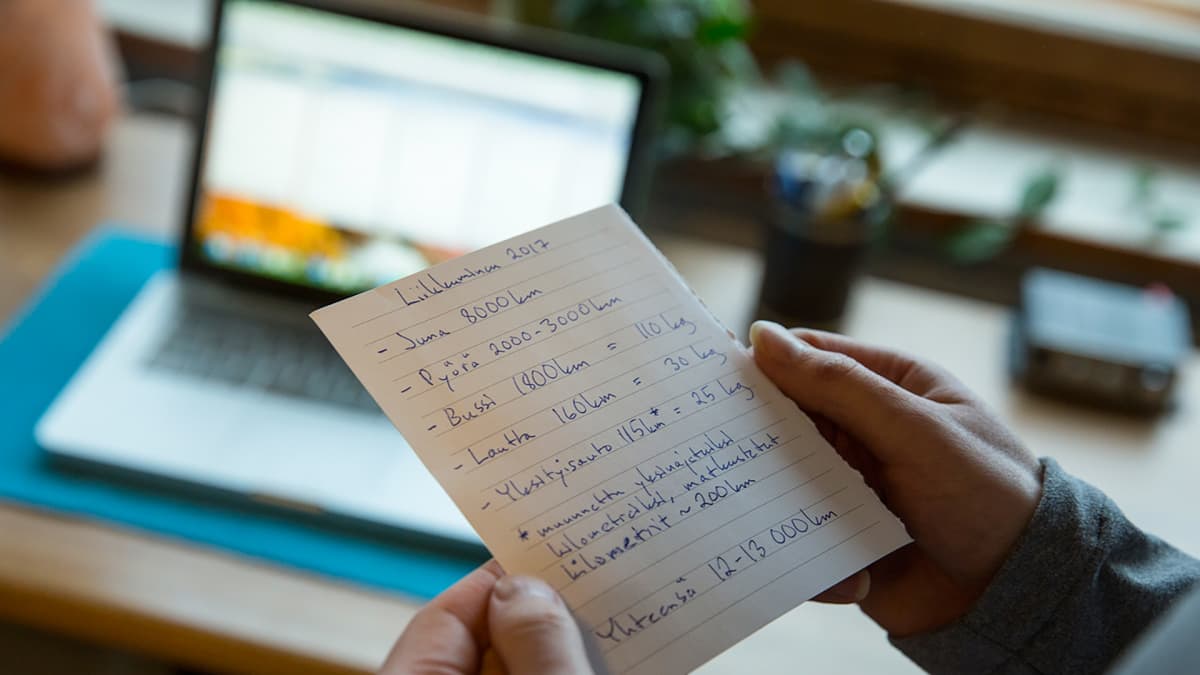 Liikkuminen 2017
- Juna 8000km
- Pyörä 2000-3000km
- Bussi 1800km = 110 kg
- Lautta 160km = 30 kg
- Yksityisauto 115km* = 25 kg
* muunnettu yksinajetuiksi
kilometreiksi, matkustetut
kilometrit ~ 200km
Yhteensä 12-13 000km